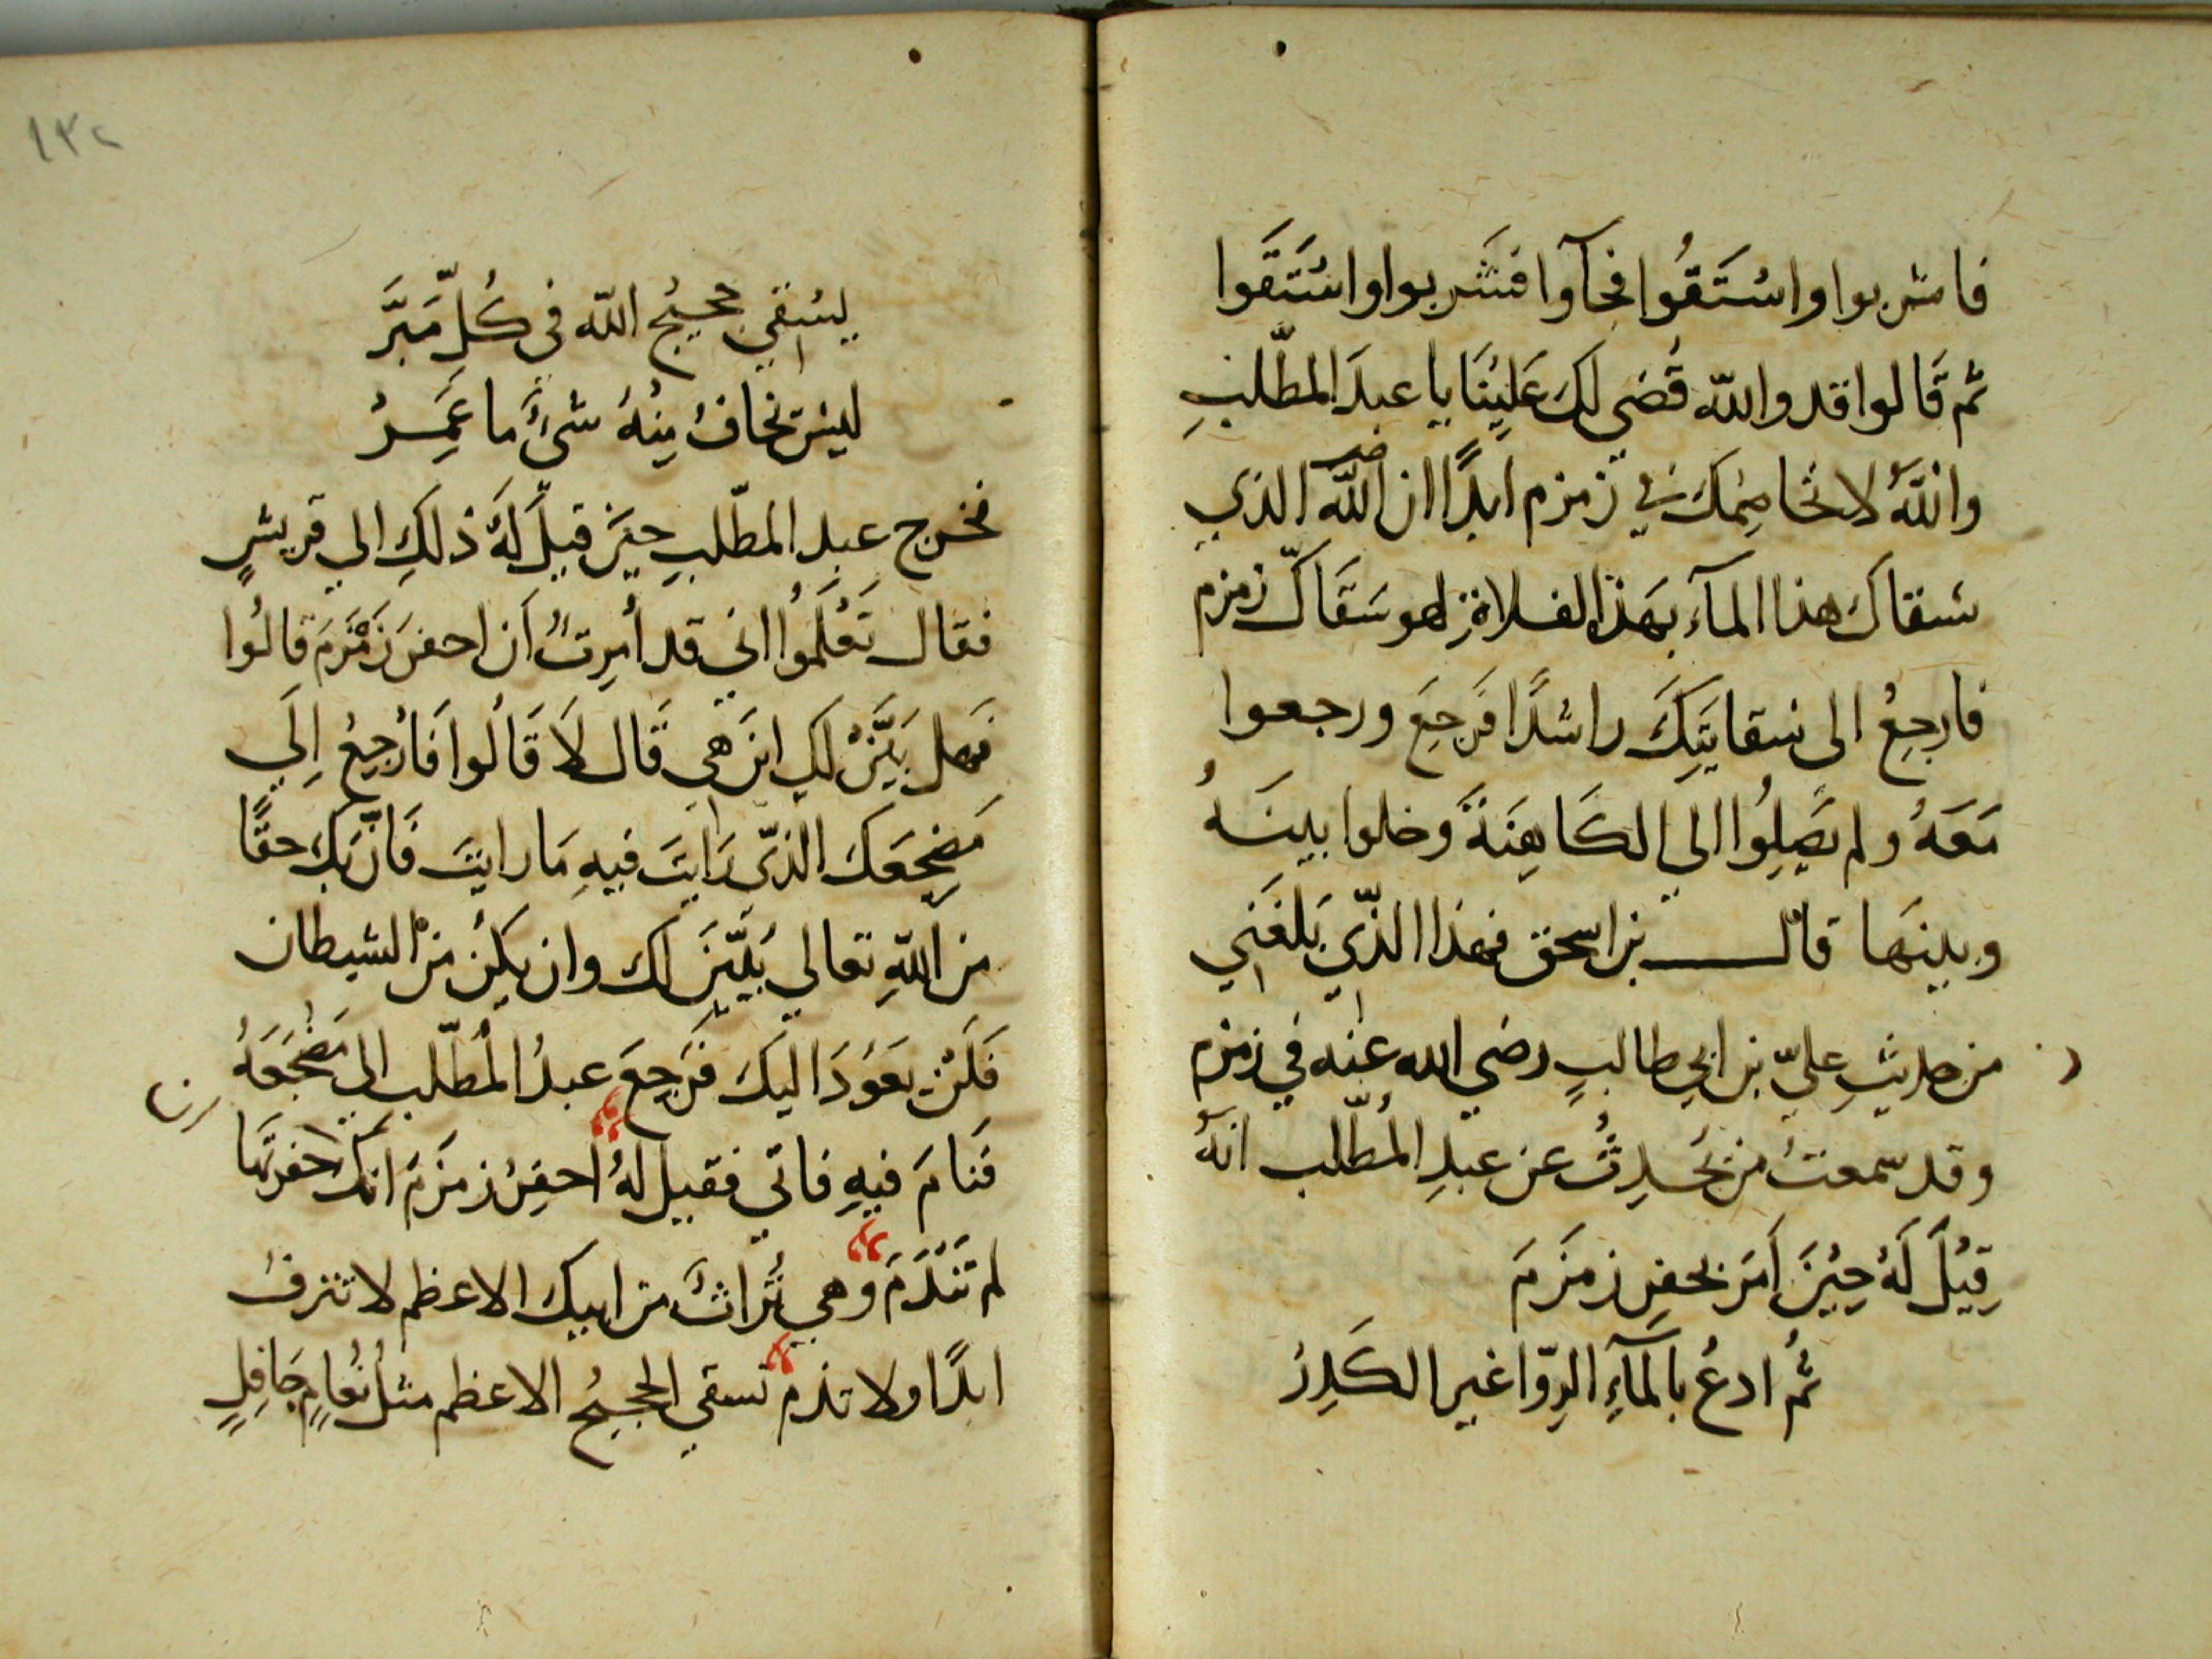 فاشربوا واسْتَقُوا فجآوا فشَربوا واسْتَقَوا
ثم قَالوا قد والله قُضي لكَ عَلَيْنَا يا عبدَ المطّلبِ
واللهِ لا نخاصِمُكَ في زمزم ابدًا ان الله الذي
سقاكَ هذا المآء بهَذِ الفلاةِ لهو سَقَاكَ زمزم
فارجعْ الى سقايتِكَ راشدًا فَرجعَ ورجعوا
مَعَهُ ولم يَصِلُوا الي الكَاهِنَةَ وخلوا بينَهُ
وبينها قال بن اسحق فهذا الذّي بَلغَني
من حديثِ عليّ بن ابي طالبٍ رضي الله عنه في زمزم
وقد سمعتُ من يُحَدِثُ عن عبدِ المُطّلب انهُ
قِيْلَ لَهُ حِيْنَ اَمَرَ بحفرِ زمزَمَ
ثُم ادعُ بالمآءِ الرِوّا غيرِ الكَدِرْ
١٣٢
يسْقي حجيجُ اللّه في كُلِّ مَبَرَّ
ليْسَ نخافُ مِنْهُ شيءٌ ما عَمِرْ
فخرج عبد المطّلبِ حيْنَ قيلَ لهُ ذلكِ الي قريشٍ
فقال تَعْلَمُوا اني قد أُمِرتُ اَن احفرَ زَمْزَمَ قالُوا
فَهل بَيَّنْ لك اينَ هي قَال لَا قَالُوا فَارْجِعْ اِلَي
مَضجعَكَ الذّي رَايتَ فيهِ مَا رايتَ فَان يَكُ حقًّا
من اللّهِ تعالي يُبَيّنَ لك وان يكنْ منْ الشيطان
فَلَنْ يعَوُدَ اليكَ فَرَجعَ عبدُ المُطّلب الي مَضْجَعَهُ
فَنامَ فيهِ فاتي فقيلَ لهُ احفِرْ زمزَمَ انك ان حفرتَهَا
لم تَنْدَمَ وهي تُراثٌ من ابيكَ الاعظم لا تنزفُ
ابدًا ولا تذم تسقي الحجيجُ الاعظم مثلُ نَعامٍ جَافِلٍ